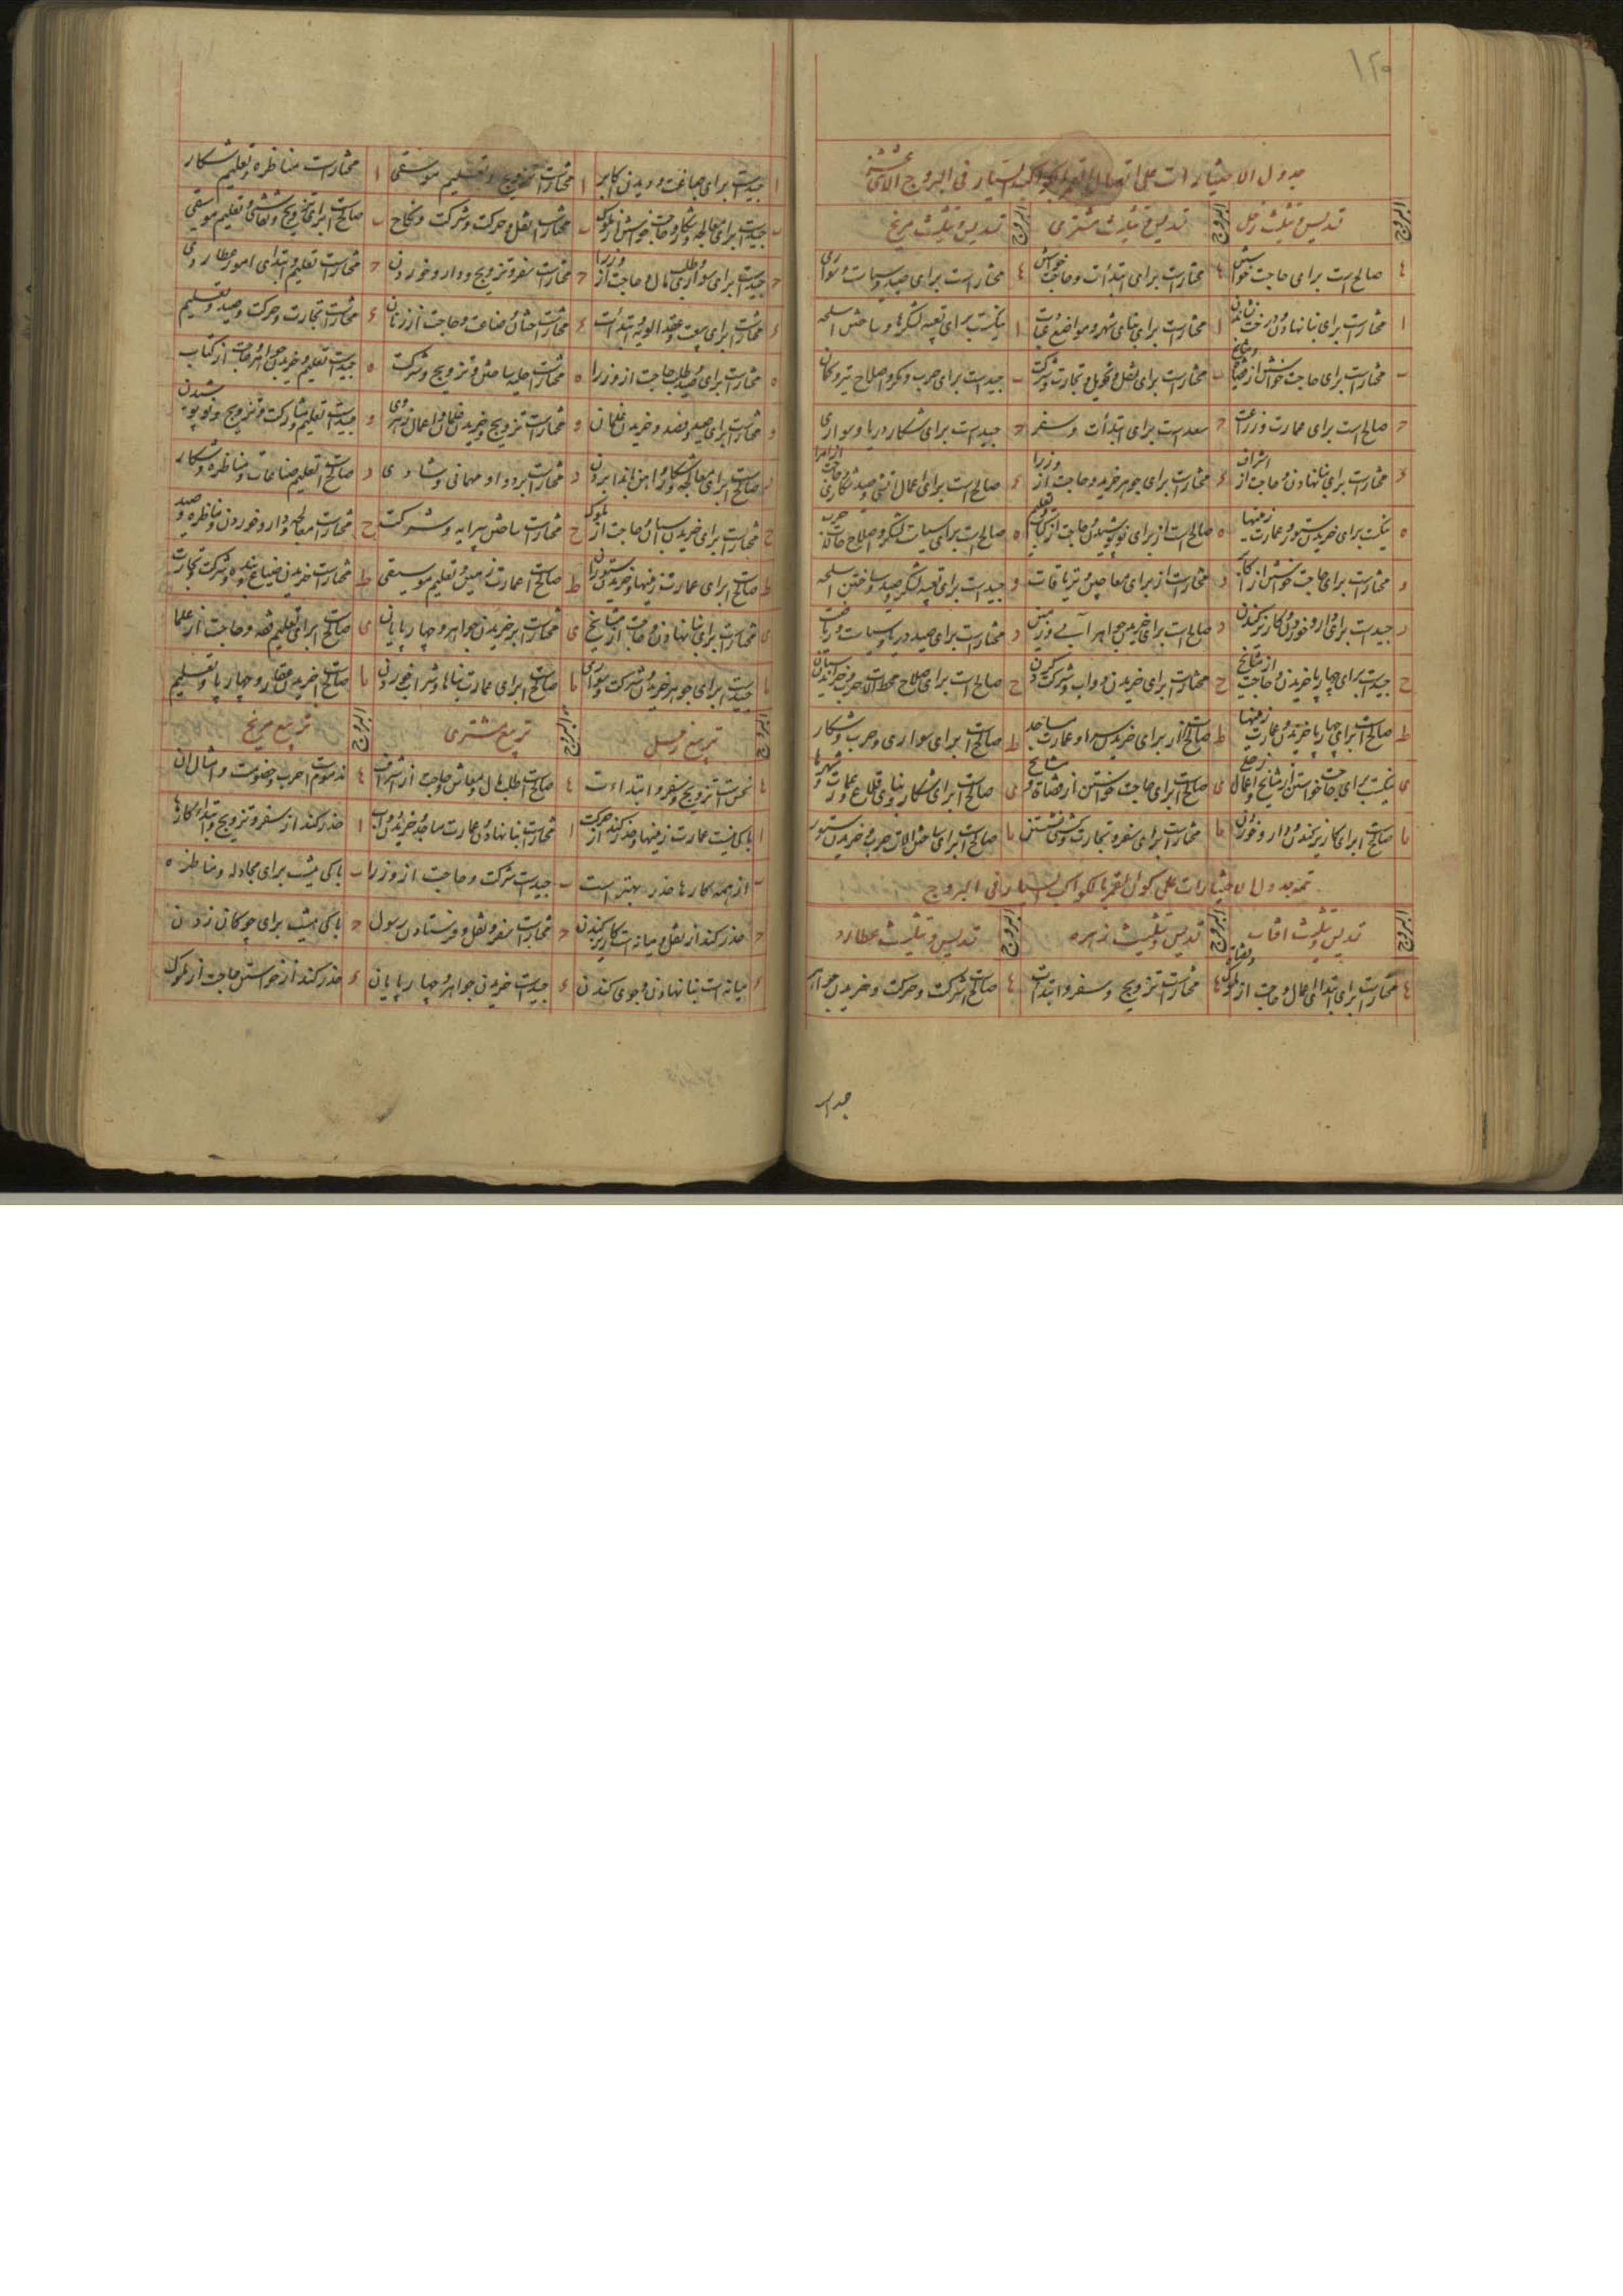 ۱۲۰
جدول الاختیارات علی اتصال القمر بالکواکب السیار فی البروج الاثنی عشر
البروج تسدیس و تثلیث زحل البروج تسدیس و تثلیث مشتری البروج تسدیس و تثلیث مریخ
صالح است برای حاجت خواستن مختارست برای ابتدآت و حاجت خواستن مختار است برای صید و سواری
ا مختارست برای بنا نهادن و درخت نشاندن ا مختارست برای بنای شهر و مواضع ا نیکست برای تعبیه لشکرها و ساختن اسلحه
ب مختارست برای حاجت خواستن از مشایخ ب مختارست برای نقل و تحویل و تجارت و شرکت ب جیدست برای حرب و مکر و اصلاح تیر و کمان
ح صالح است برای عمارت و زراعت ح سعدست برای ابتدآت و سفر ح جیدست برای شکار دریا و سواری
ء مختارست برای بنا نهادن و حاجت از اشراف ء مختارست برای جوهر خریدن و حاجت از وزرا ء صالح است برای اعمال
ه نیکست برای خریدن ستور و عمارت زمینها ه صالح است از برای نو پوشیدن و حاجت از ه صالح است برای لشکر و اصلاح آلات حرب
و مختارست برای حاجت خواستن از و مختارست از برای معاجین و تریاقات و جیدست برای تعبیه لشکر و صید و ساختن اسلحه
ر جیدست برای دارو خوردن و کاریز کندن ر صالح است برای خریدن جواهر آبی و زمین ر مختارست برای صید دریا
ح جیدست برای چارپا خریدن و حاجت از مشایخ ح مختارست برای خریدن دواب و شرکت کردن ح صالح است برای اصلاح آلات حرب
ط صالح است برای چهارپا خریدن و عمارت زمینها ط صالح است از برای خریدن سرا و عمارت مساجد ط صالح است برای سواری و حرب و شکار
ی نیکست برای حاجت خواستن از مشایخ و اعمال ی صالح است برای حاجت خواستن از قضاة و مشایخ ی صالح است برای شکار و بنای قلاع و عمارت شهرها
یا صالح است برای کاریز کندن و دارو خوردن یا مختارست برای سفر و تجارت و کشتی نشستن یا صالح است برای ساختن آلات حرب و خریدن ستور
تتمه جدول الاختیارات علی کون القمر بالکواکب السیار فی البروج
البروج تسدیس و تثلیث آفتاب البروج تسدیس و تثلیث زهره البروج تسدیس و تثلیث عطارد
مختارست برای ابتدای اعمال و حاجت از ملوک مختارست تزویج و سفر و ابتدآت صالح است شرکت و حرکت و خریدن جواهر
جیدست
ا جیدست برای صناعت و دیدن اکابر ا مختارست تزویج و تعلیم موسیقی ا مختارست مناظره و تعلیم شکار
ب جیدست برای معالجه و شکار و حاجت خواستن از ملوک ب مختارست نقل و حرکت و شرکت و نکاح ب صالح است برای تزویج و نقاشی و تعلیم موسیقی
ح جیدست برای سواری و طلب مال و حاجت از وزرا ح مختارست سفر و تزویج و دارو خوردن ح مختارست تعلیم و ابتدای امور عطاردی
ء مختارست برای بیعت و عقد الویه و ابتدآت ء مختارست ختان و ضیافت و حاجت از زنان ء مختارست تجارت و حرکت و صید و تعلیم
ه مختارست برای صید و طلب حاجت از وزرا ه مختارست حلیه ساختن و تزویج و شرکت ه جیدست تعلیم و خریدن جواهر و حاجت از کتاب
و مختارست برای صید و فصد و خریدن غلمان و مختارست تزویج و خریدن غلمان و اعمال زهروی و جیدست تعلیم و شرکت و تزویج و نو پوشیدن
ر صالح است برای معالجه و شکار ر مختارست نرد و مهمانی و شادی ر صالح است تعلیم صناعات و مناظره و شکار
ح مختارست برای خریدن و حاجت از ملوک ح مختارست ساختن پیرایه و شرکت ح مختارست معالجه و دارو خوردن و مناظره و صید
ط صالح است برای عمارت زمینها و خریدن ستوران ط صالح است عمارت زمین و تعلیم موسیقی ط مختارست خریدن ضیاع و بنده و شرکت و تجارت
ی مختارست برای بنا نهادن و حاجت از مشایخ ی مختارست بر خریدن جواهر و چهارپایان ی صالح است برای تعلیم فقه و حاجت از علما
یا جیدست برای جوهر خریدن و شرکت و سواری یا صالح است برای عمارت بناها و شراب خوردن یا صالح است خریدن عقار و چهارپا و تعلیم
البروج تربیع زحل البروج تربیع مشتری البروج تربیع مریخ
نحس است تزویج و سفر و ابتداءت صالح است طلب مال و معاش و حاجت از اشراف مذموم است حرب و خصومت و امثال آن
ا باکی نیست عمارت زمینها و حذر کند از حرکت ا مختارست بنا نهادن و عمارت مساجد و خریدن دواب ا حذر کند از سفر و تزویج و ابتداء کارها
ب از همه کارها حذر بهترست ب جیدست شرکت و حاجت از وزرا ب باکی نیست برای مجادله و مناظره
ح حذر کند از نقل و میانه است کاریز کندن ح مختارست سفر و نقل و فرستادن رسول ح باکی نیست برای چوکان زدن
ء میانه است بنا نهادن و جوی کندن ء جیدست خریدن جواهر و چهارپایان ء حذر کند از خواستن حاجت از ملوک